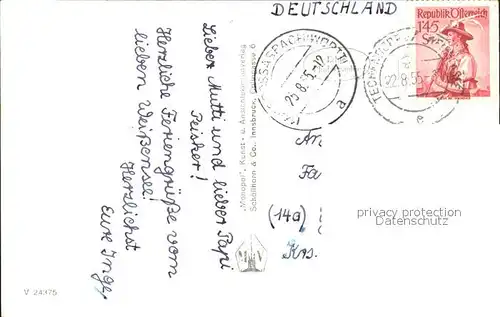 DEUTSCHLAND
Republik Österreich
1.45
25.8.55-12
a
22.8.55
e
Lieber Mutti und lieber Papi
Peisker!
Herzliche Feriengrüße vom
lieben Weißensee!
Herzlichst
Eure Inge
"Monopol", Kunst- u. Ansichtskartenverlag
Schöllhorn & Co., Innsbruck,
An
Fa
(14a)
Krs.
privacy protection
Datenschutz
V 24375